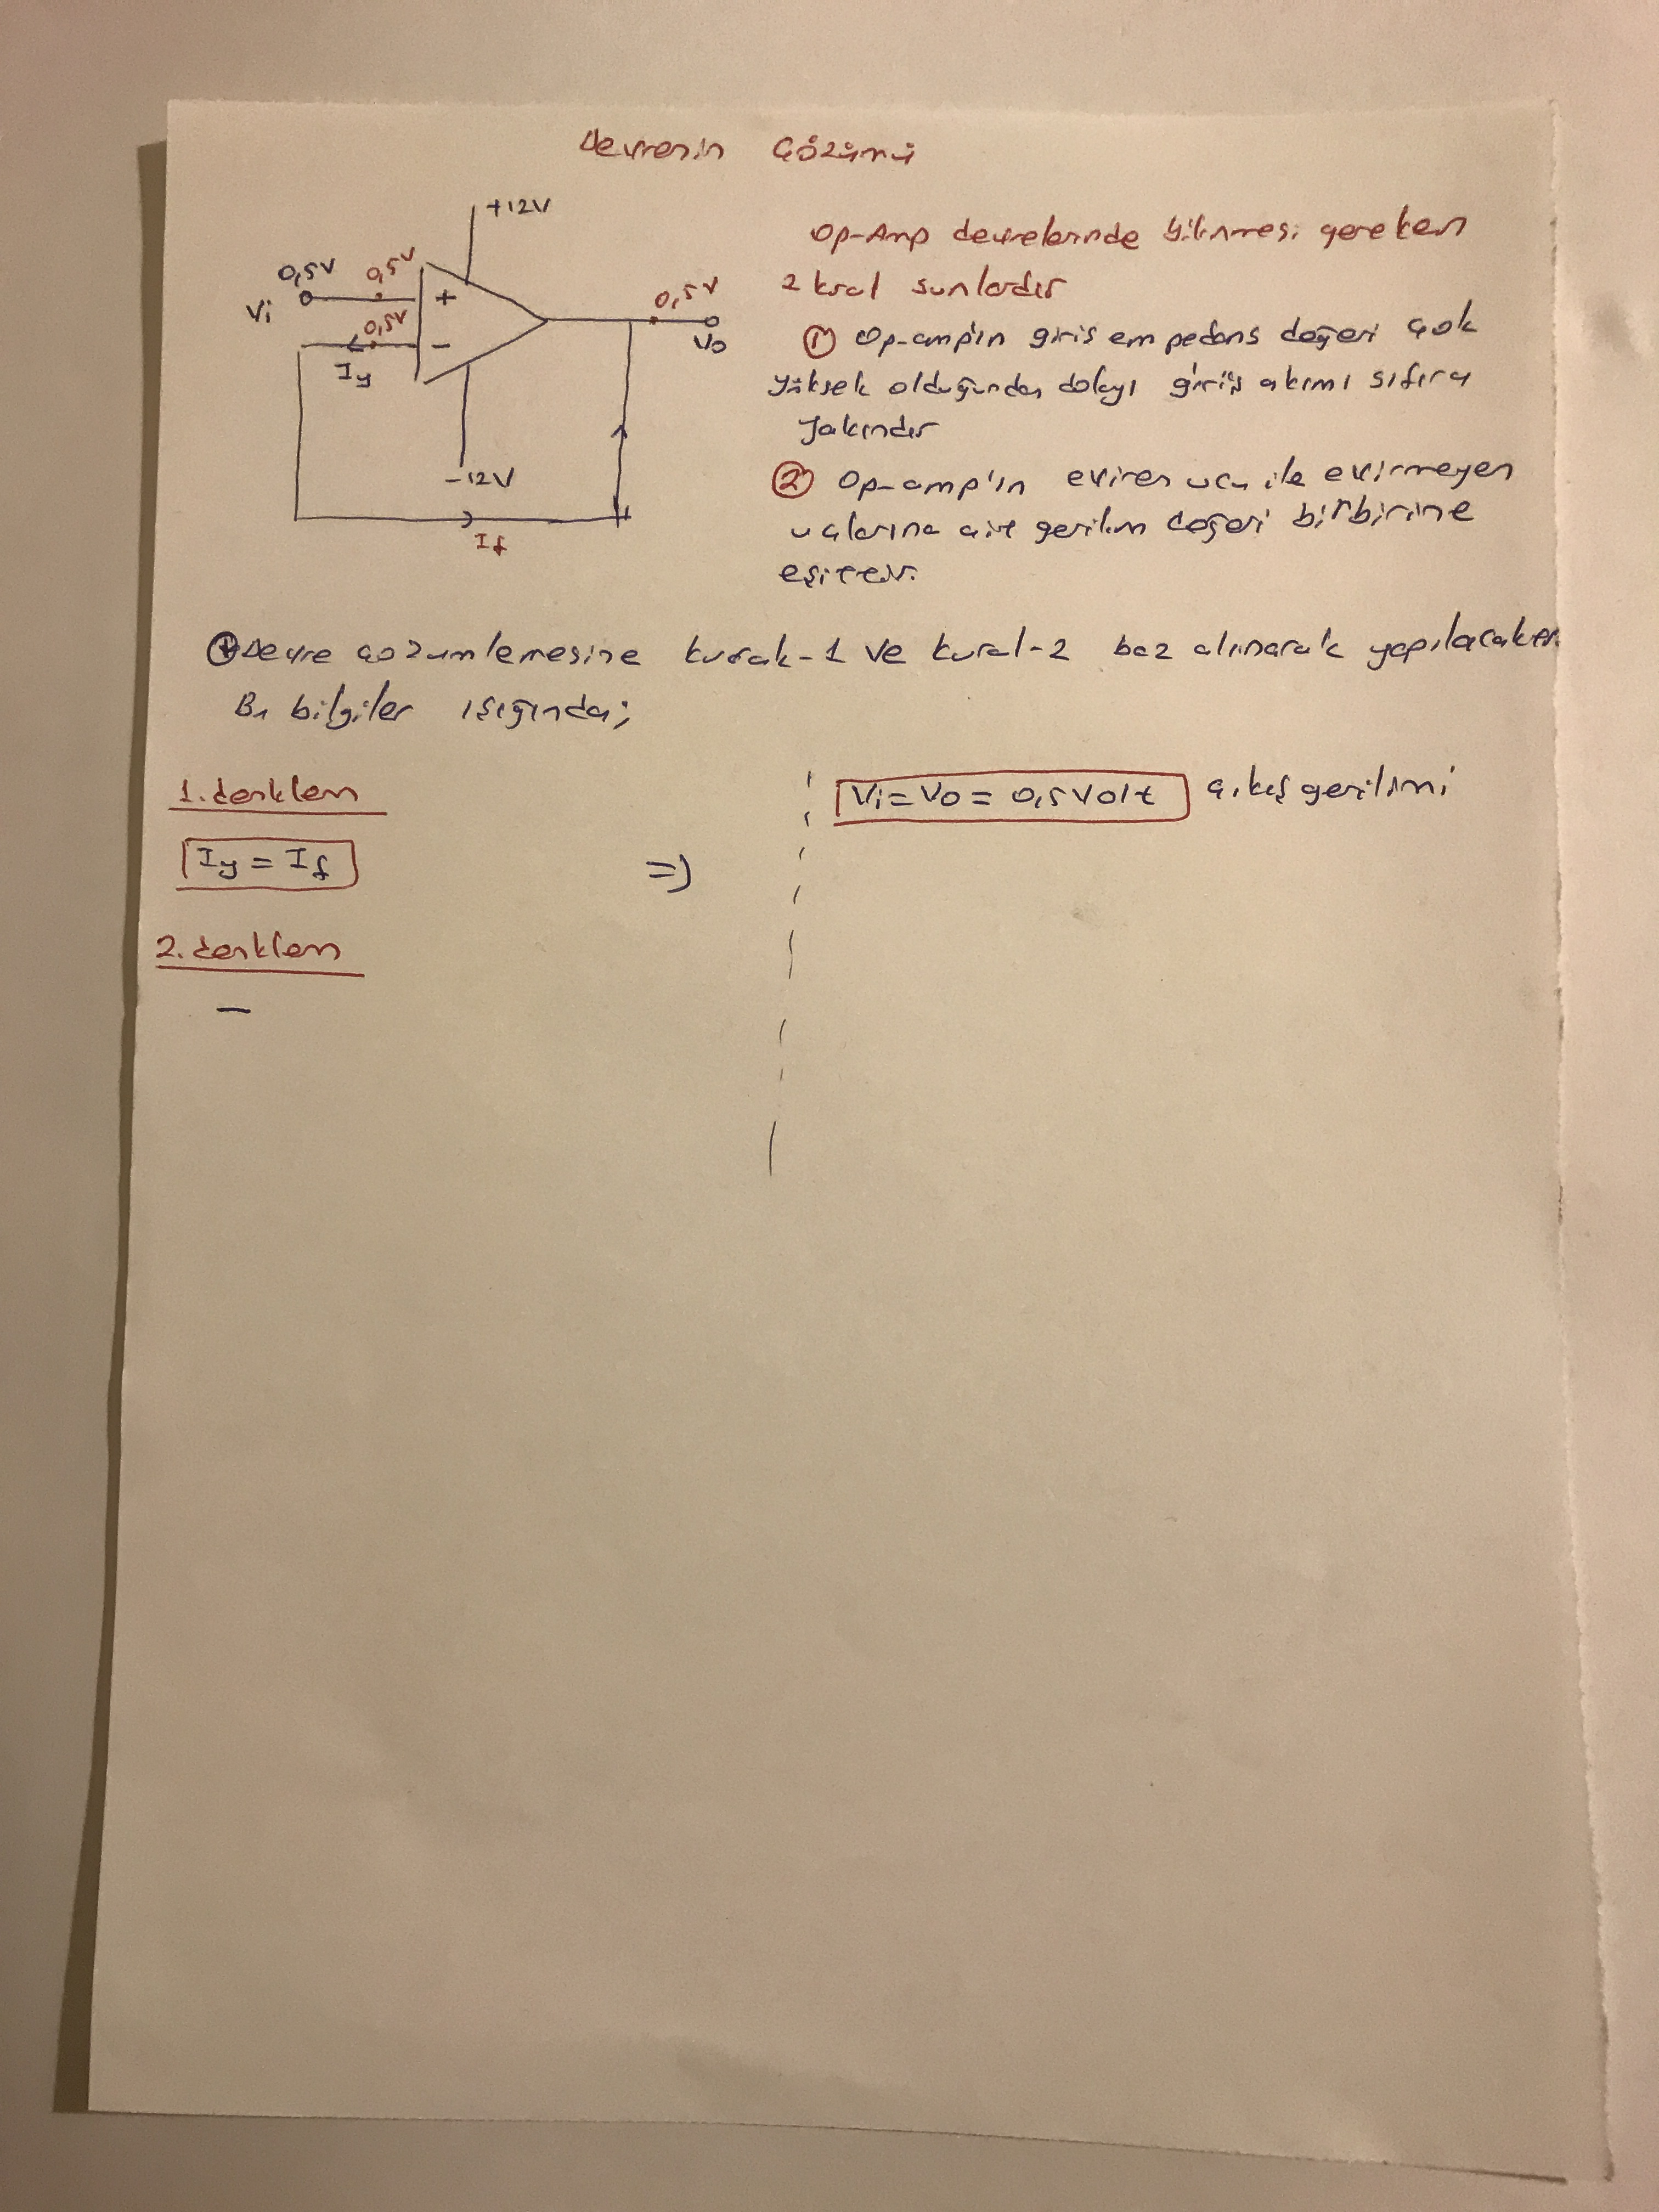 Devrenin Çözümü
+12V
0,5V
0,5V
Vi
+
0,5V
-
Iy
0,5V
Vo
-12V
If
Op-Amp devrelerinde bilinmesi gereken
2 kral sunlardır
① Op-amp'ın giriş empedans değeri çok
yüksek olduğundan dolayı giriş akımı sıfıra
yakındır
② Op-amp'ın eviren ucu ile evirmeyen
uçlarına ait gerilim değeri birbirine
eşittir.
Devre çözümlemesine kural-1 ve kural-2 baz alınarak yapılacaktır.
Bu bilgiler ışığında;
1. denklem
Iy = If
=>
2. denklem
-
Vi = Vo = 0,5 Volt çıkış gerilimi